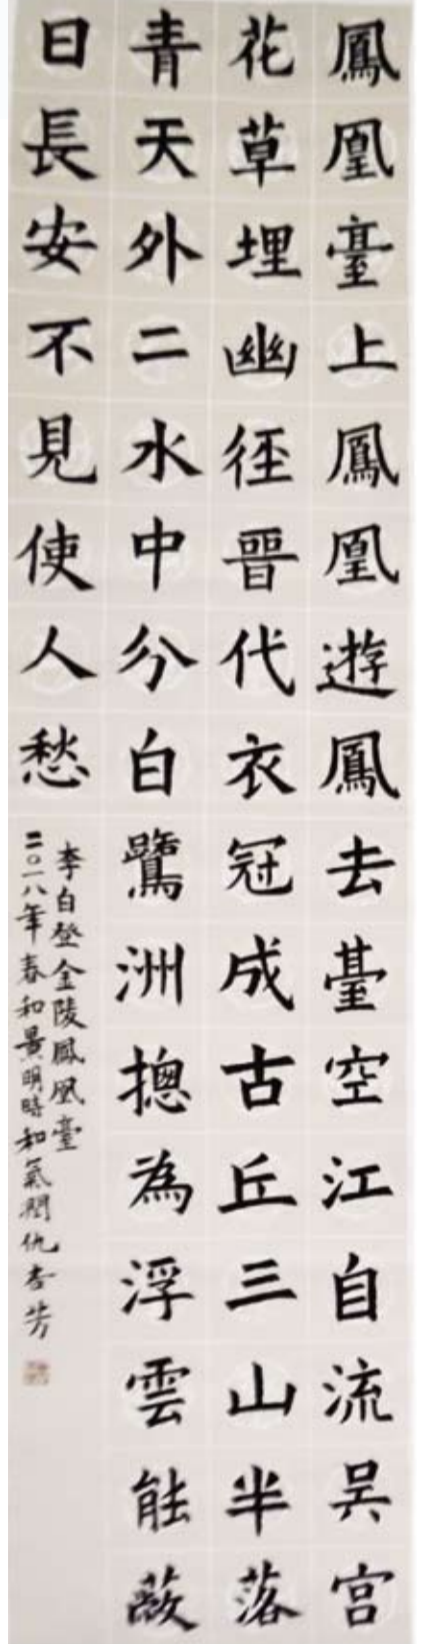 鳳凰臺上鳳凰遊鳳去臺空江自流吴宫
花草埋幽徑晉代衣冠成古丘三山半落
青天外二水中分白鷺洲摠為浮雲能蔽
日長安不見使人愁
李白登金陵鳳凰臺
二〇一八年春和景明時和氣閣仇杏芳